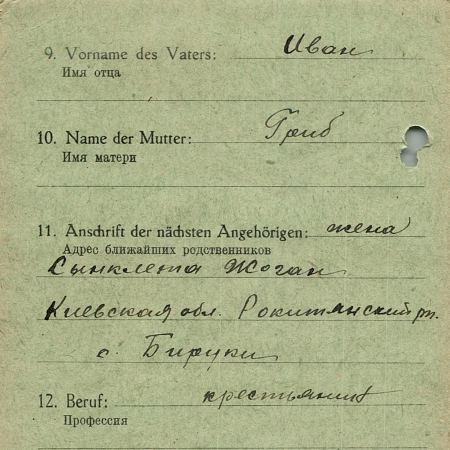 9. Vorname des Vaters: Иван
Имя отца
10. Name der Mutter: Гриб
Имя матери
11. Anschrift der nächsten Angehörigen: жена
Адрес ближайших родственников
Сынклета Жоган
Киевская обл. Рокитянский рн.
с. Бируки
12. Beruf: крестьянин
Профессия